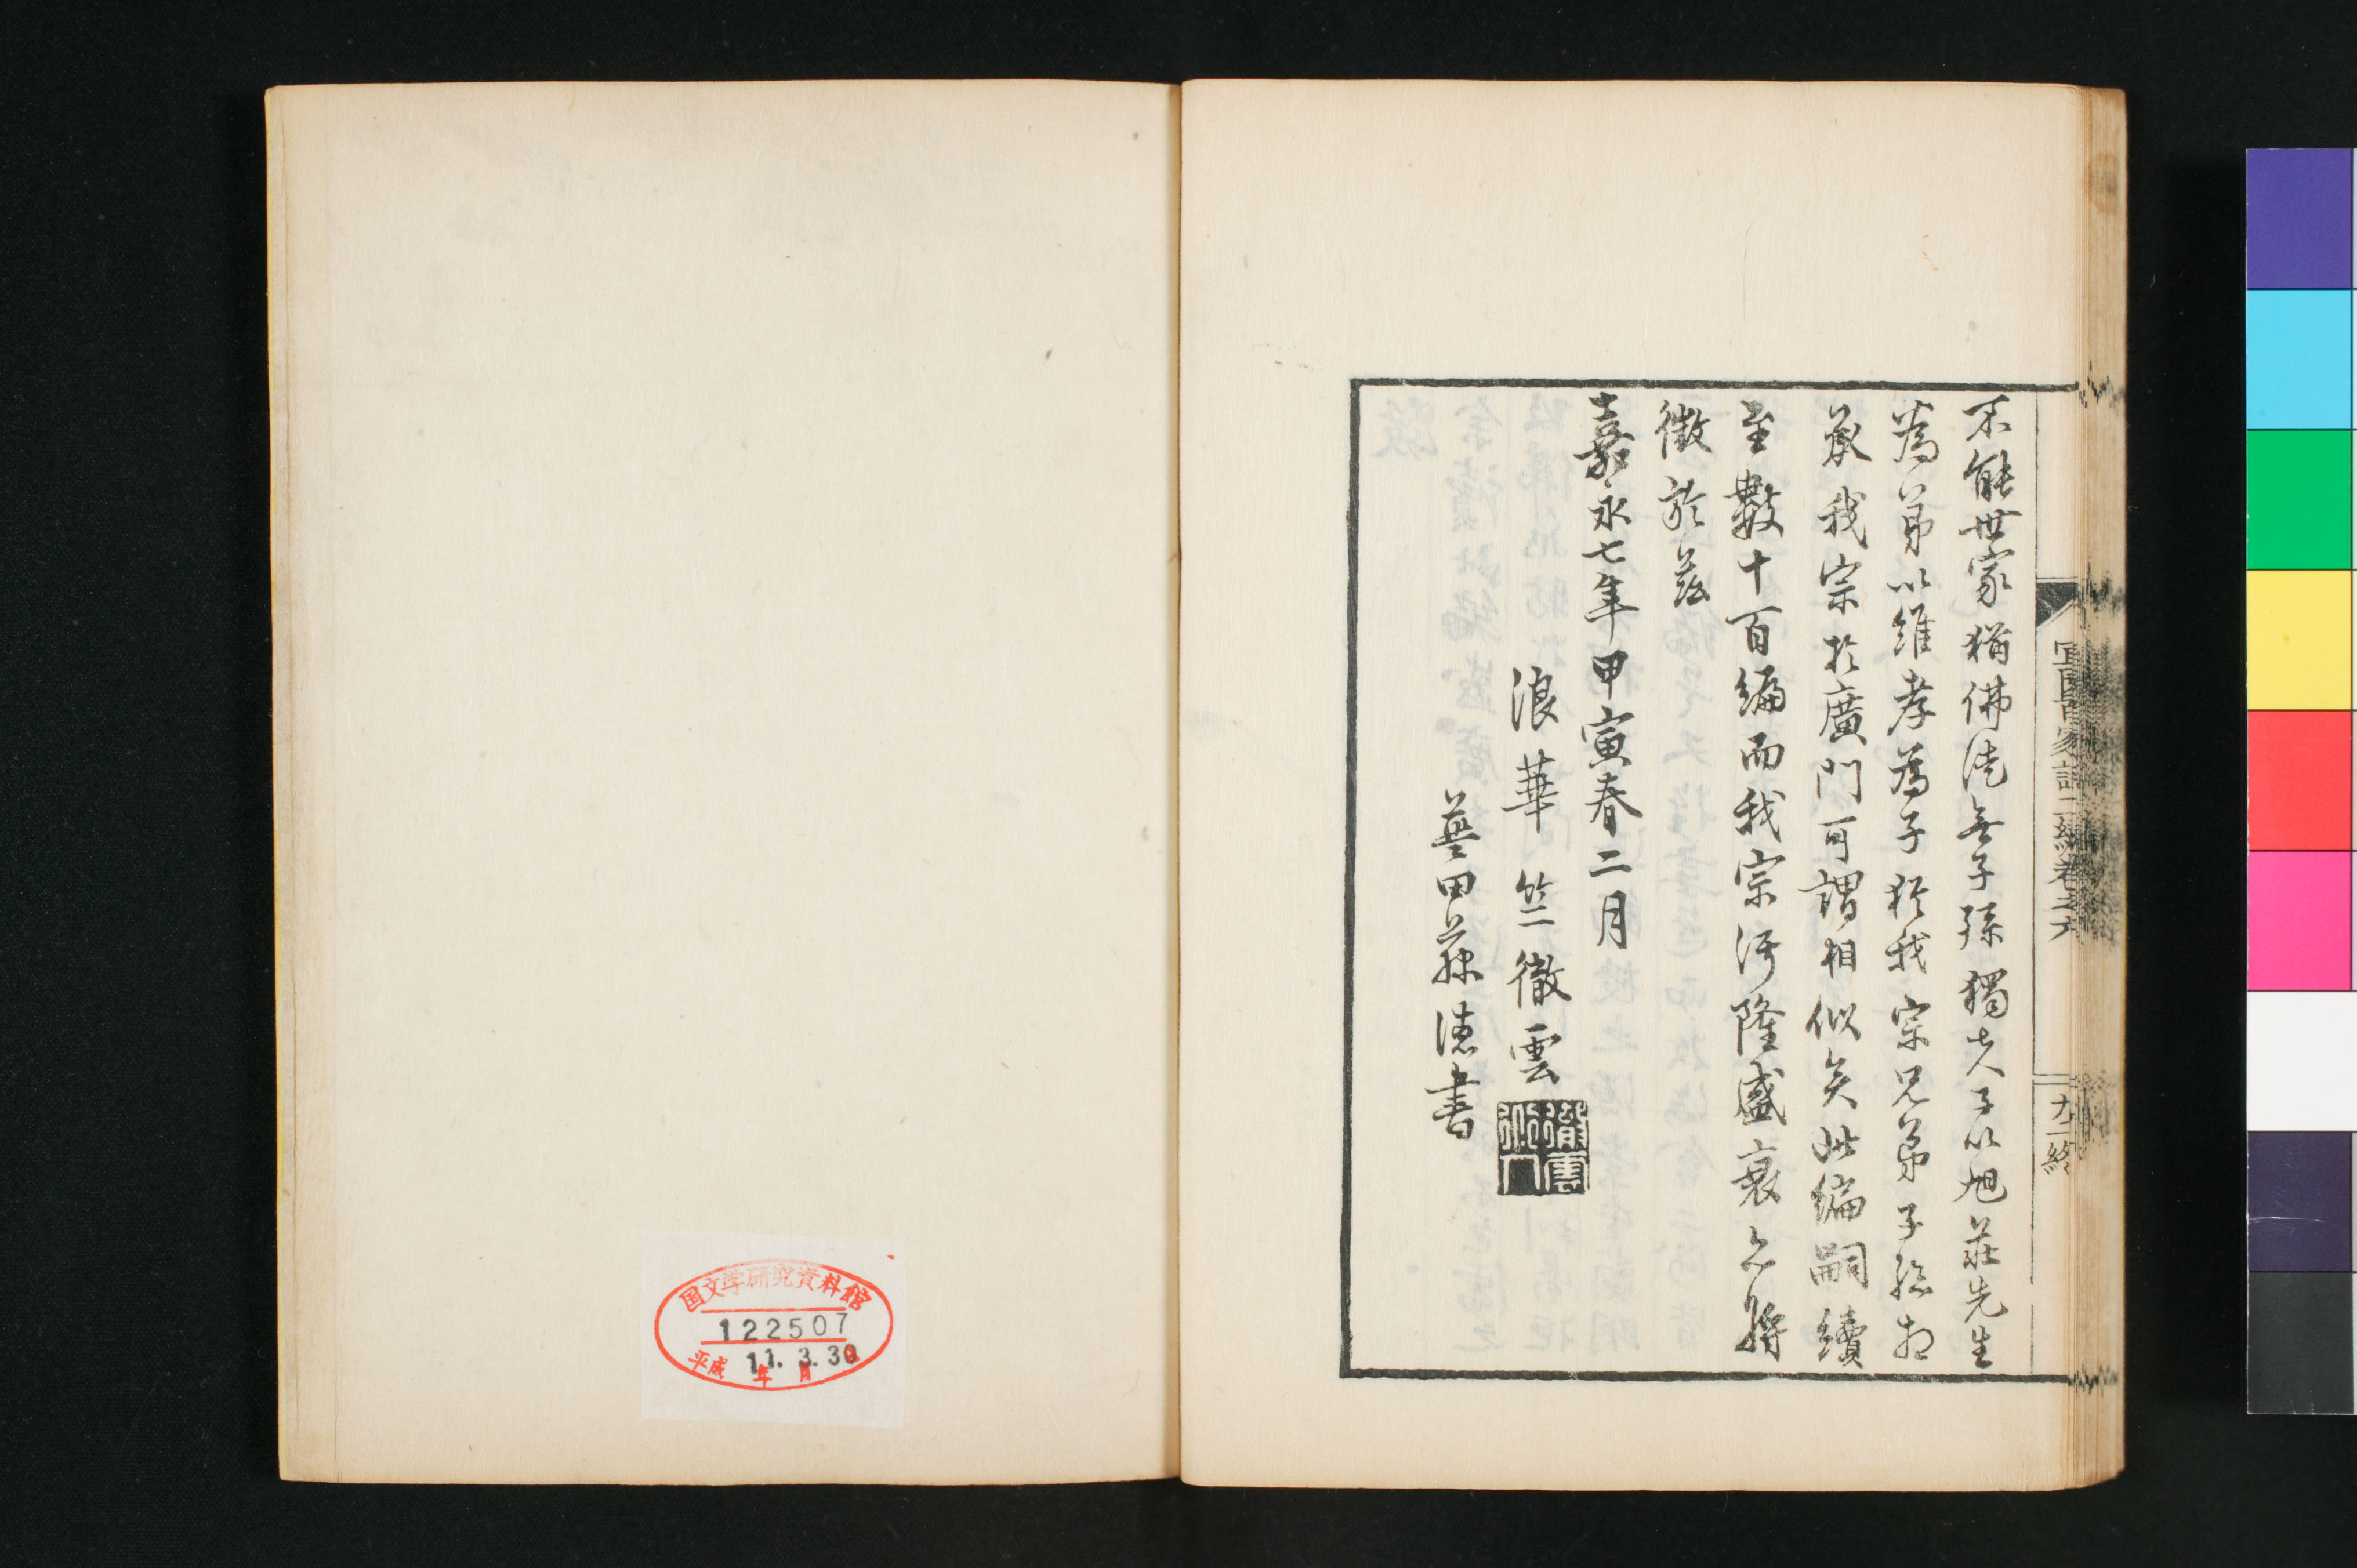 不能世家猶佛徒無子孫獨夫子以旭莊先生
為弟以維孝為子猶我宗兄弟子孫相
承我宗於廣門可謂相似矣此編嗣續
至數十百編而我宗汚隆盛衰亦將
徵於茲
嘉永七年甲寅春二月
浪華 竺徹雲
徹雲
藝田蘇德書
宜園百家詩二編卷之六
九
終
国文学研究資料館
122507
平成 11. 3. 30
年 月 日